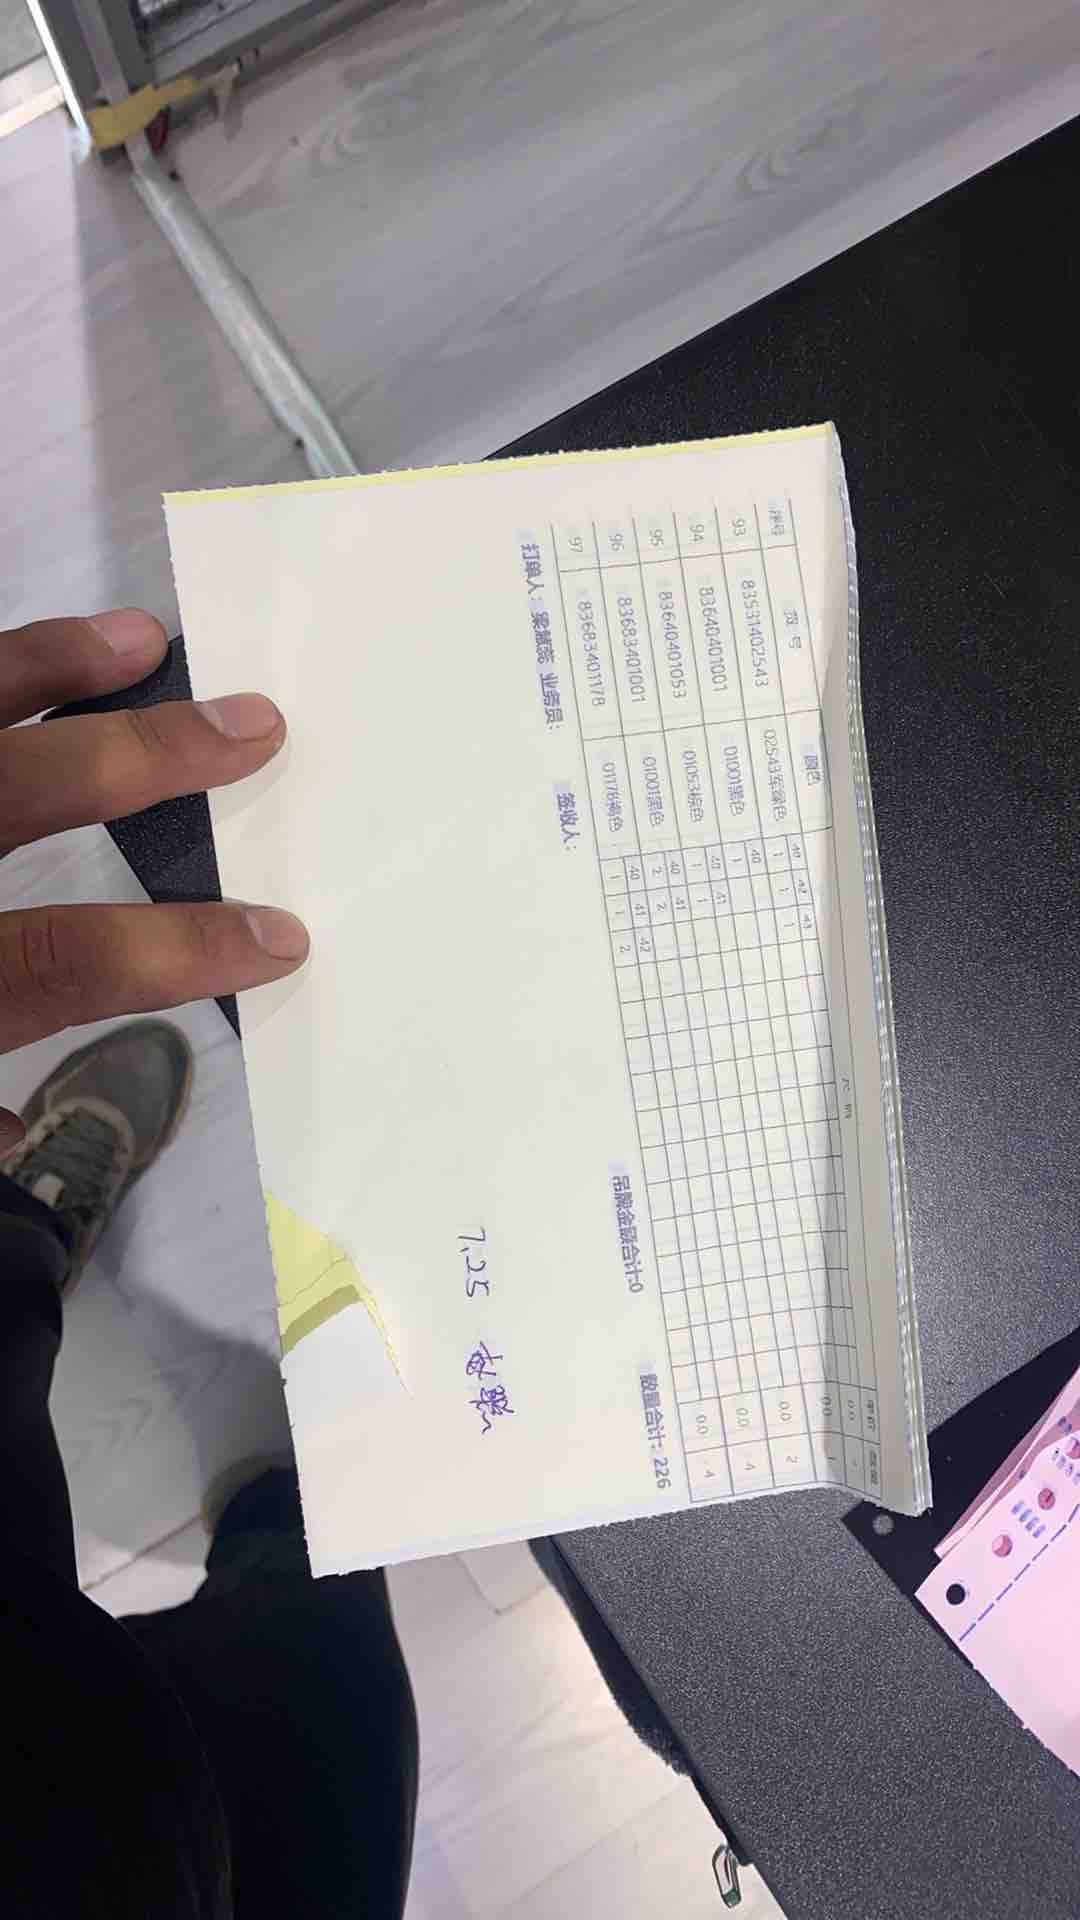 尺码
序号 货号 颜色 单价 数量
40 42 43
93 83531402543 02543军绿色 1 1 1 0.0
40
94 83640401001 01001黑色 1 0.0 1
40 41
95 83640401053 01053棕色 1 1 0.0 2
40 41
96 83683401001 01001黑色 2 2 0.0 4
40 41 42
97 83683401178 01178褐色 1 1 2 0.0 4
打单人: 梁慧蕊 业务员: 签收人: 吊牌金额合计:0 数量合计: 226
7.25